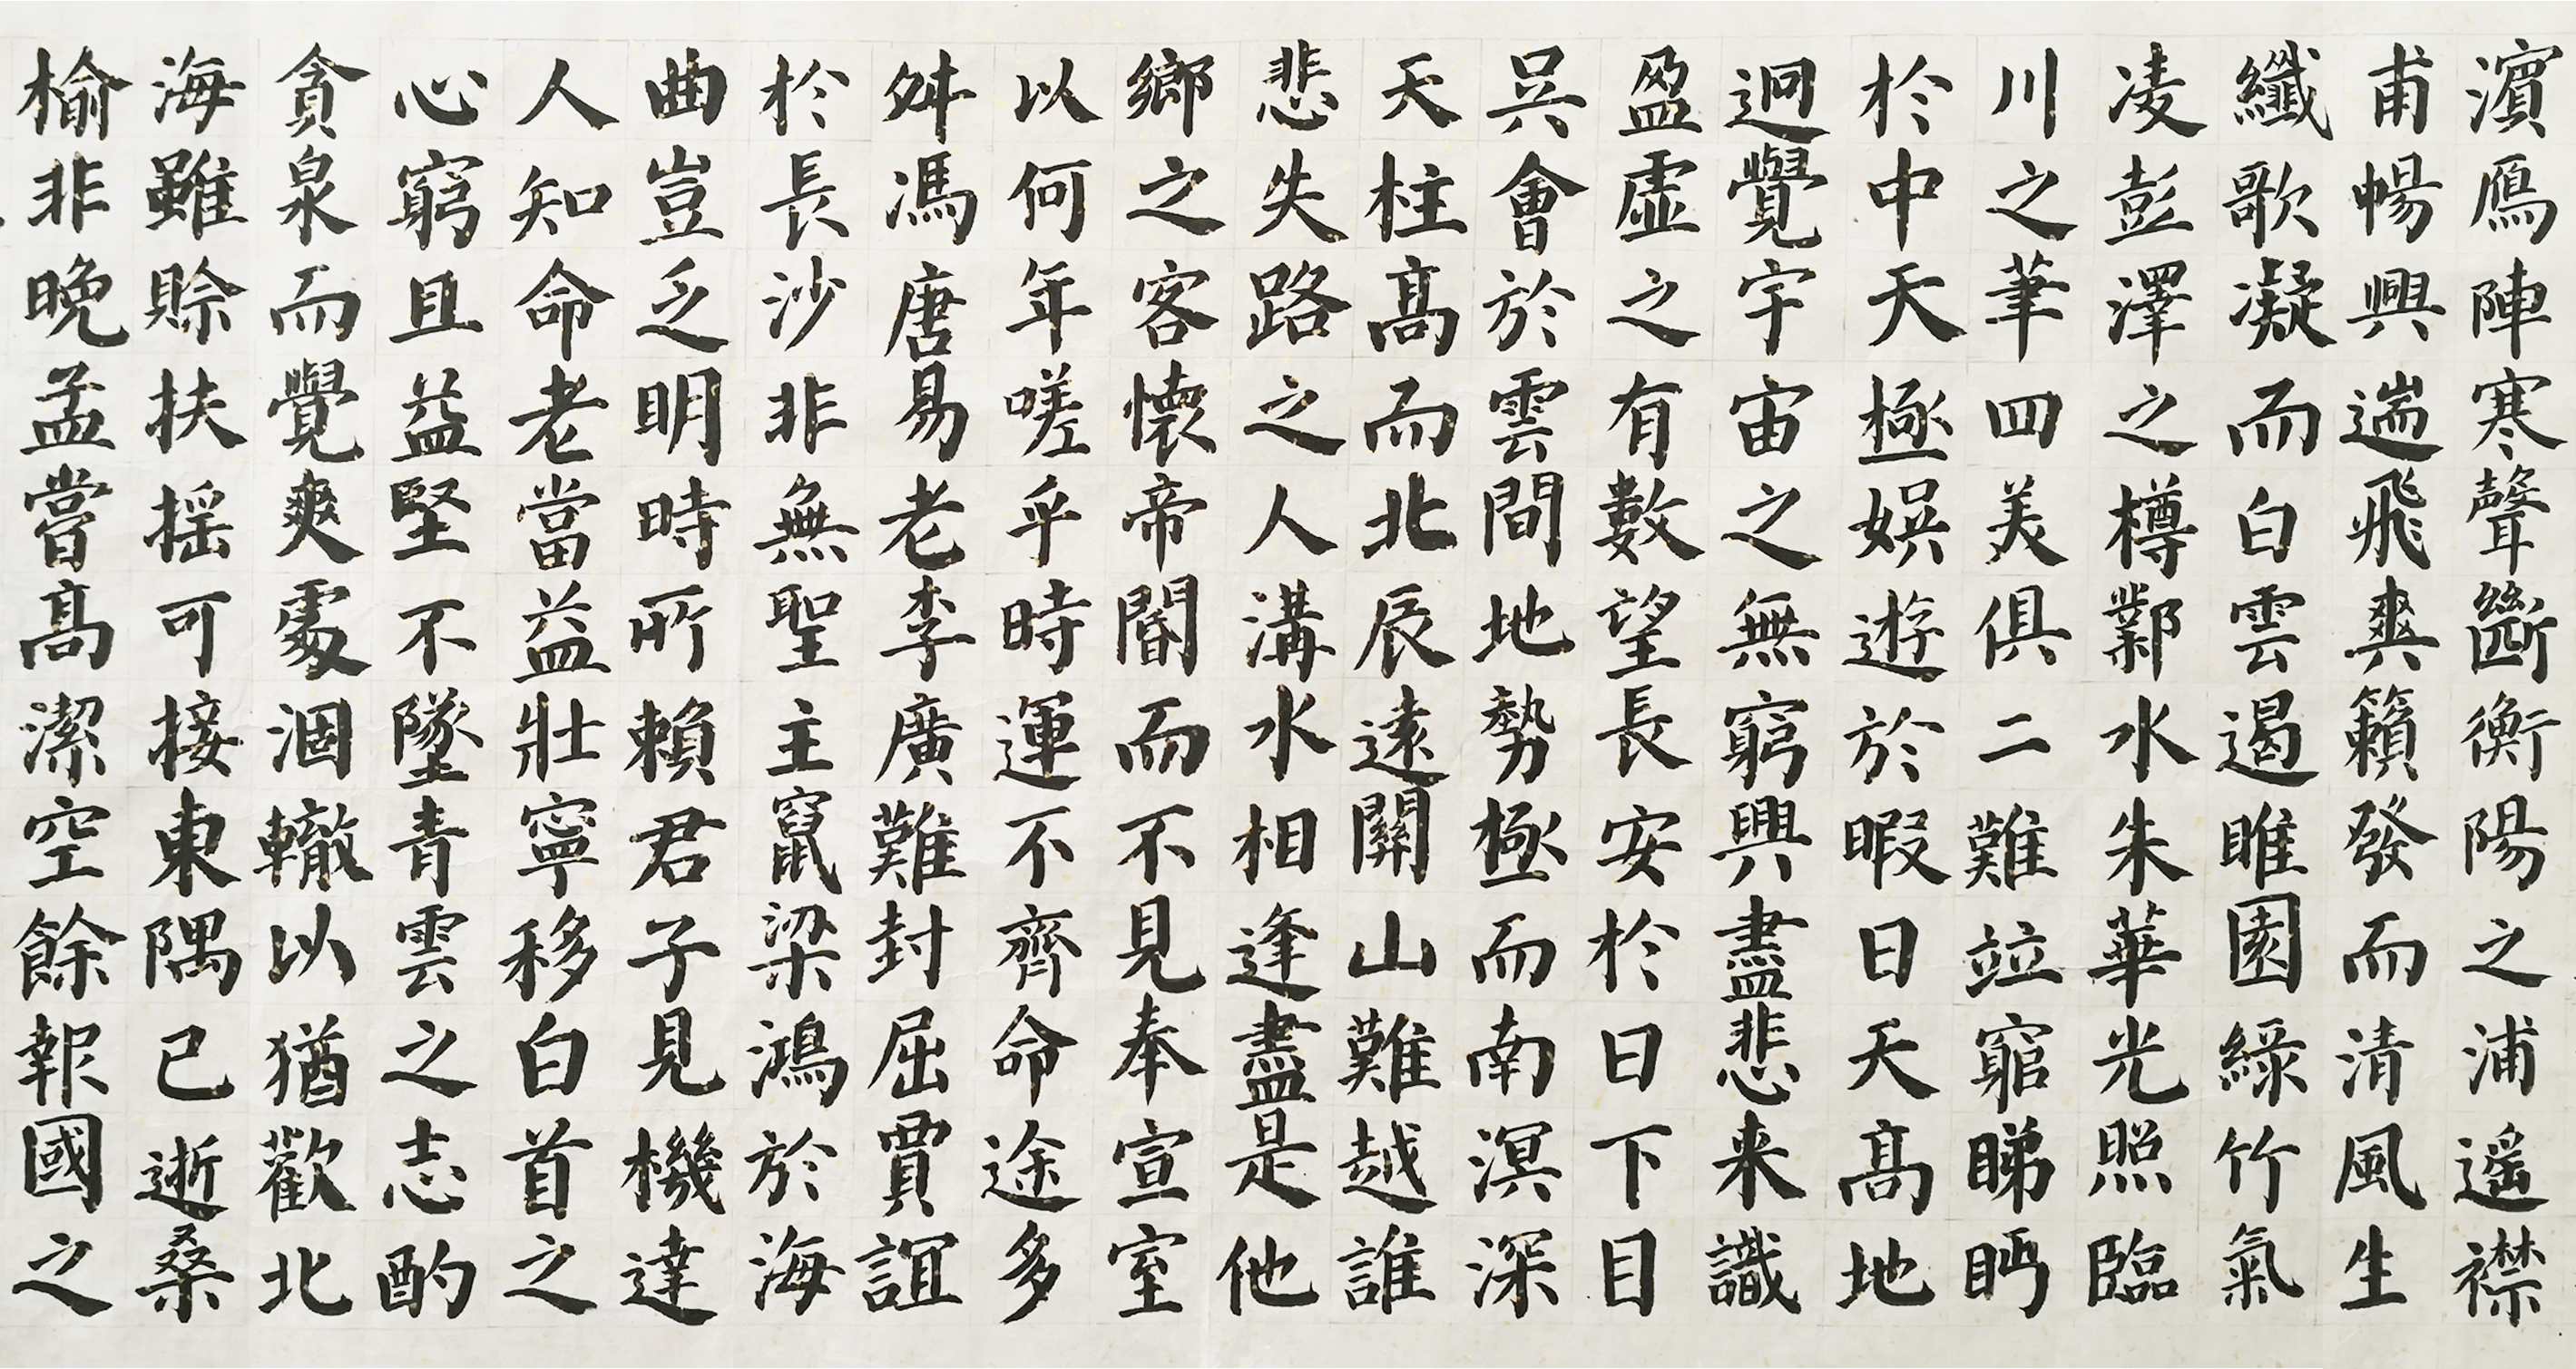 濱鴈陣寒聲斷衡陽之浦遥襟
甫暢興遄飛爽籟發而清風生
纖歌凝而白雲遏睢園綠竹氣
凌彭澤之樽鄴水朱華光照臨
川之筆四美俱二難竝窮睇眄
於中天極娛遊於暇日天髙地
迥覺宇宙之無窮興盡悲来識
盈虛之有數望長安於日下目
吳會於雲間地勢極而南溟深
天柱髙而北辰遠關山難越誰
悲失路之人溝水相逢盡是他
鄉之客懷帝閽而不見奉宣室
以何年嗟乎時運不齊命途多
舛馮唐易老李廣難封屈賈誼
於長沙非無聖主竄梁鴻於海
曲豈乏明時所賴君子見機達
人知命老當益壯寧移白首之
心窮且益堅不墜青雲之志酌
貪泉而覺爽處涸轍以猶歡北
海雖賒扶摇可接東隅已逝桑
榆非晚孟嘗髙潔空餘報國之